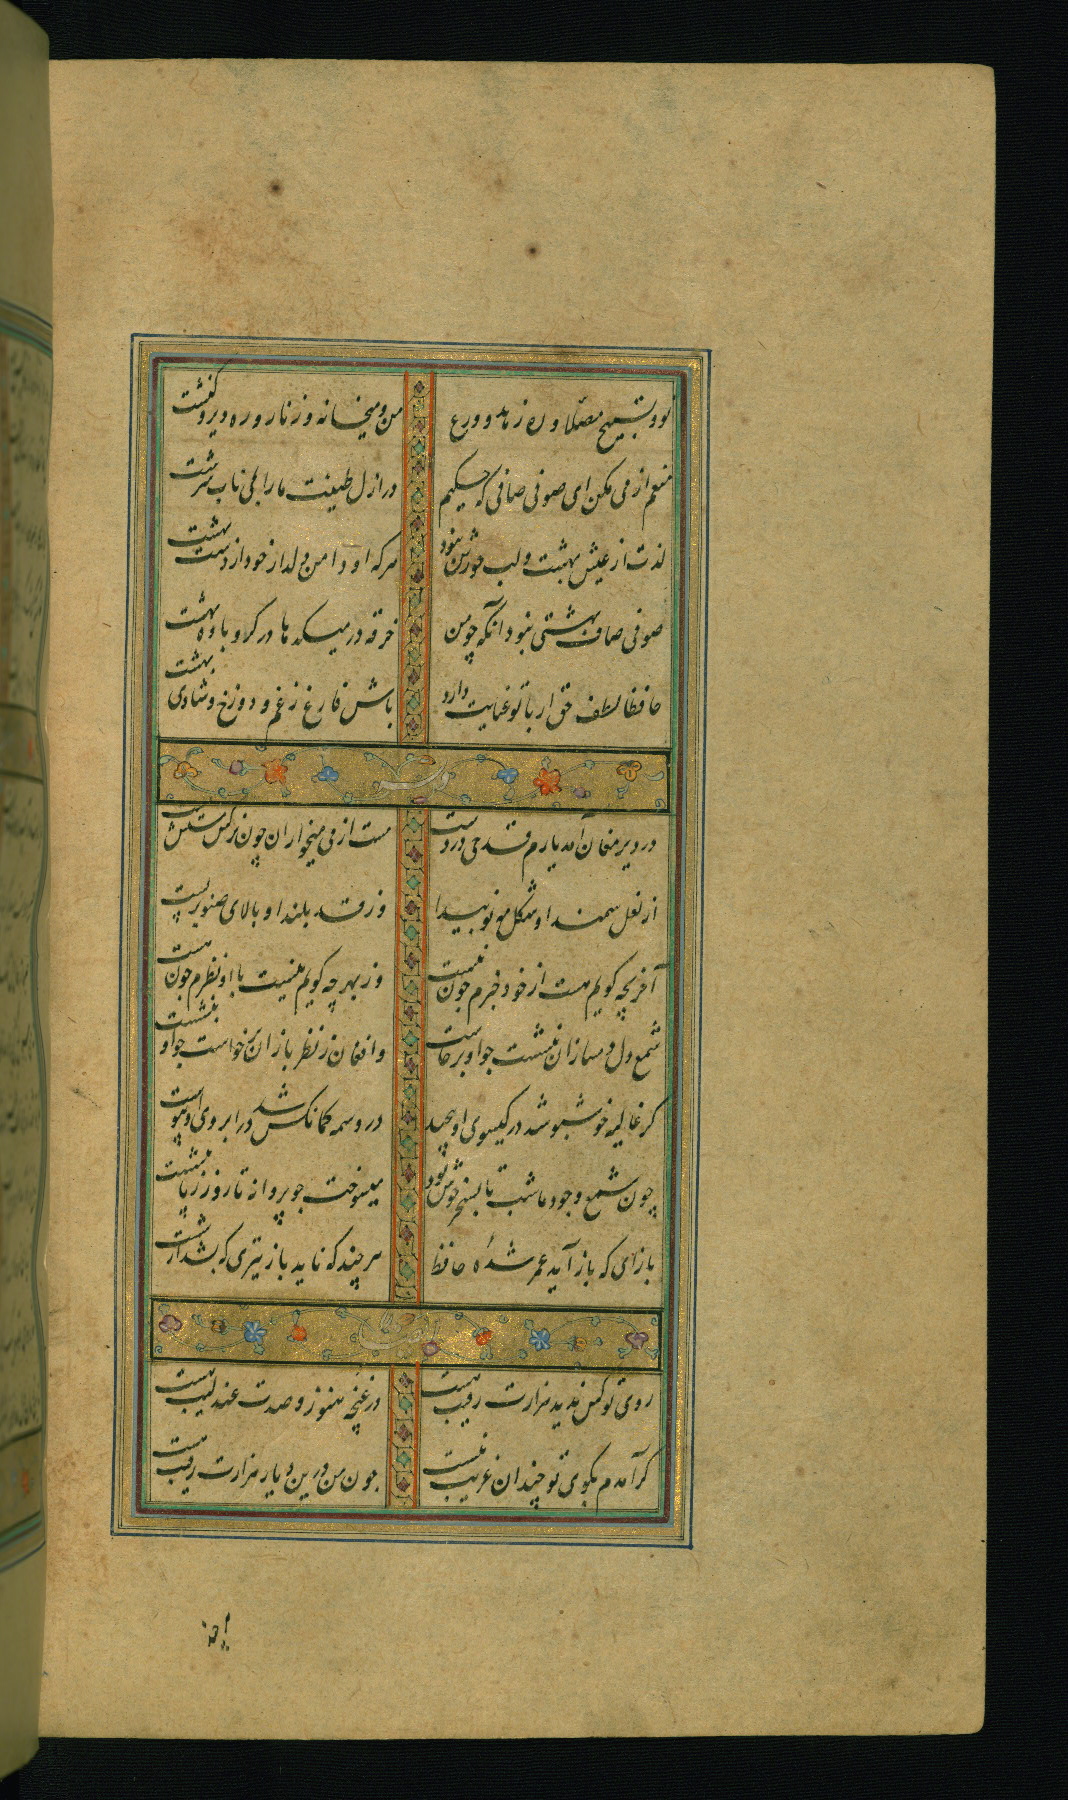 تو و تسبیح و مصلا و ره زهد و ورع
من و میخانه و زنار و ره دیر و کنشت
منعم از می مکن ای صوفی صافی که حکیم
در ازل طینت ما را بمی ناب سرشت
لذت از عیش بهشت و لب حورش نبود
هرکه او دامن دلدار خود از دست بهشت
صوفی صاف بهشتی نبود آنکه چو من
خرقه در میکدها در کرو باده بهشت
حافظا لطف حق ار با تو عنایت دارد
باش فارغ ز غم و دوزخ و شادی بهشت
در دیر مغان آمد یارم قدحی در دست
مست از می و میخواران چون نرکس مستش مست
از نعل سمند او شکل مه نو پیدا
وز قد بلند او بالای صنوبر پست
آخر بچه کویم هست از خود خبرم چون نیست
وز بهر چه کویم نیست با او نظرم چون هست
شمع دل دمسازان بنشست چو او برخاست
و افغان ز نظر بازان برخواست چو او بنشست
کر غالیه خوشبو شد در کیسوی او پیچید
ور وسمه کمانکش شد در ابروی او پیوست
چون شمع وجود ما شب تا بسحر خوش بود
میسوخت چو پروانه تا روز ز پا ننشست
بازای که باز آید عمر شدهٔ حافظ
هر چند که ناید باز تیری که بشد از شست
روی تو کس ندید و هزارت رقیب هست
در غنچه هنوز و صدت عندلیب هست
کر آمدم بکوی تو چندان غریب نیست
چون من درین دیار هزارت رقیب هست